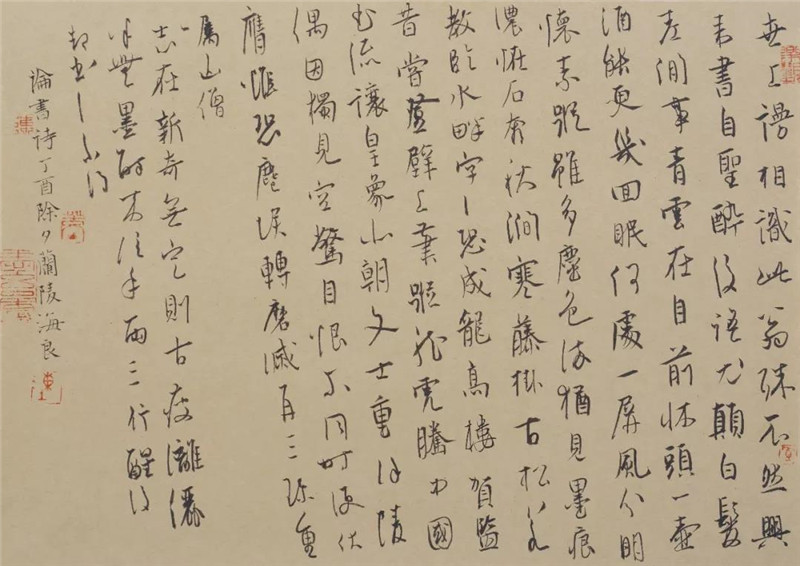 世上謾相識此翁殊不然興
來書自聖醉後語尤顛白髮
老閒事青雲在目前床頭一壺
酒能更幾回眠何處一屏風分明
懷素蹤雖多塵色染猶見墨痕
濃怪石奔秋澗寒藤掛古松若
教臨水畔字〻恐成龍高樓賀監
昔嘗登壁上筆蹤龍虎騰中國
書流讓皇象北朝文士重徐陵
偶因獨見空驚目恨不同時便伏
膺惟恐塵埃轉磨滅再三珍重
屬山僧
志在新奇無定則古瘦灕
半無墨醉來信手兩三行醒後
却書〻不得
論書詩丁酉除夕蘭陵海良